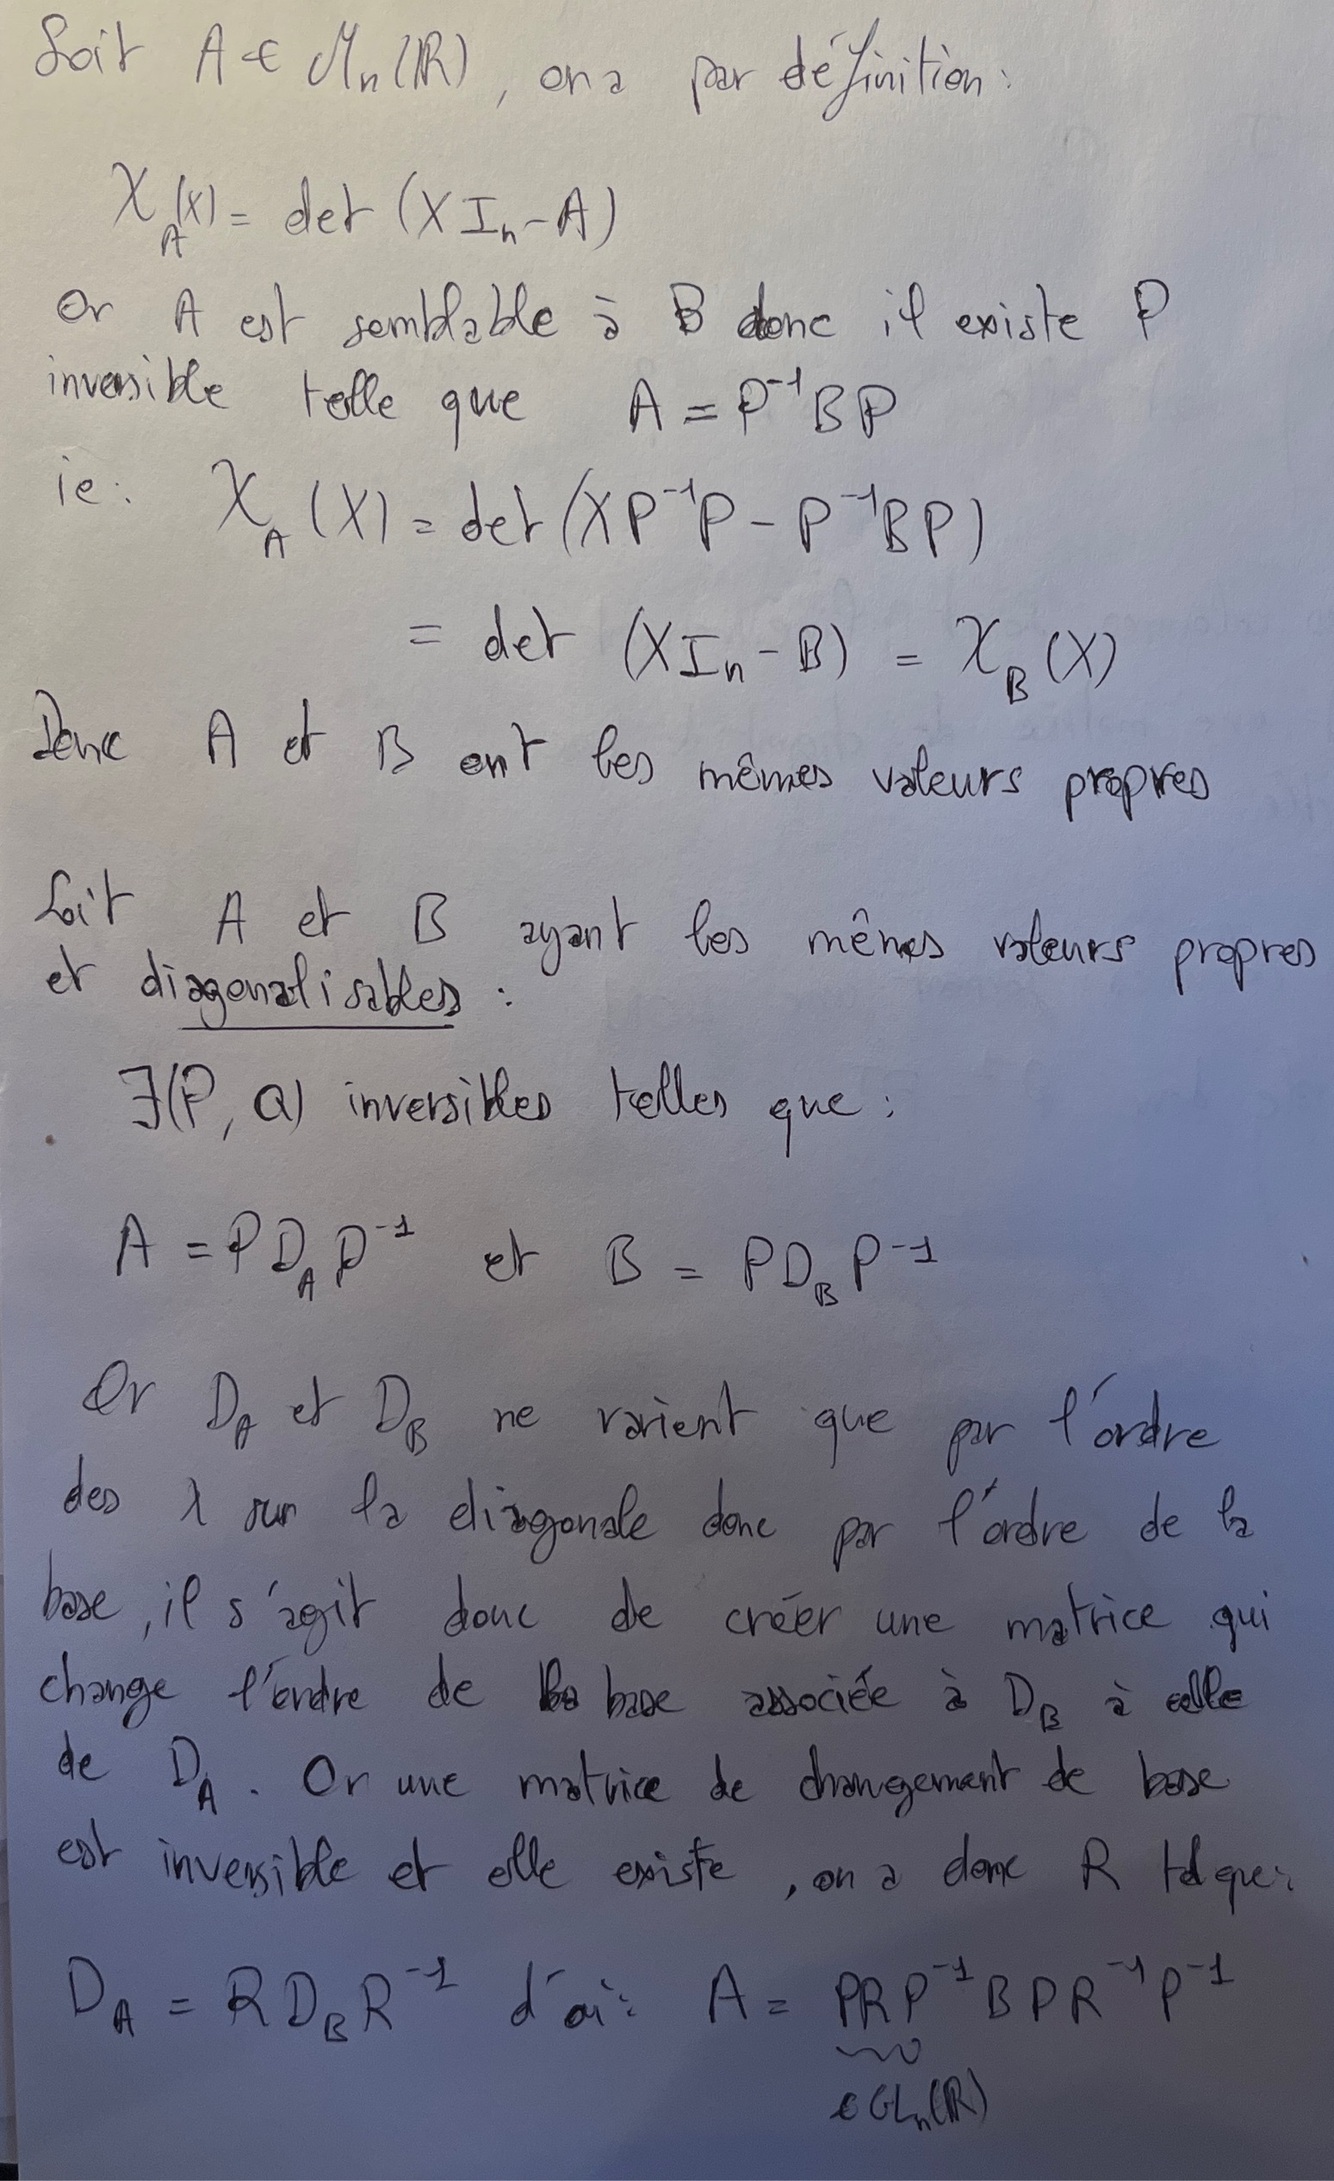 Soit A ∈ Mn(ℝ), on a par définition :
χ_A(X) = det (X I_n - A)
Or A est semblable à B donc il existe P
inversible telle que A = P⁻¹BP
ie : χ_A (X) = det (XP⁻¹P - P⁻¹BP)
= det (X I_n - B) = χ_B (X)
Donc A et B ont les mêmes valeurs propres
Soit A et B ayant les mêmes valeurs propres
et diagonalisables :
∃(P, Q) inversibles telles que :
A = P D_A P⁻¹ et B = P D_B P⁻¹
Or D_A et D_B ne varient que par l'ordre
des λ sur la diagonale donc par l'ordre de la
base, il s'agit donc de créer une matrice qui
change l'ordre de la base associée à D_B à celle
de D_A. Or une matrice de changement de base
est inversible et elle existe, on a donc R tel que :
D_A = R D_B R⁻¹ d'où : A = PRP⁻¹BPR⁻¹P⁻¹
∈ GL_n(ℝ)